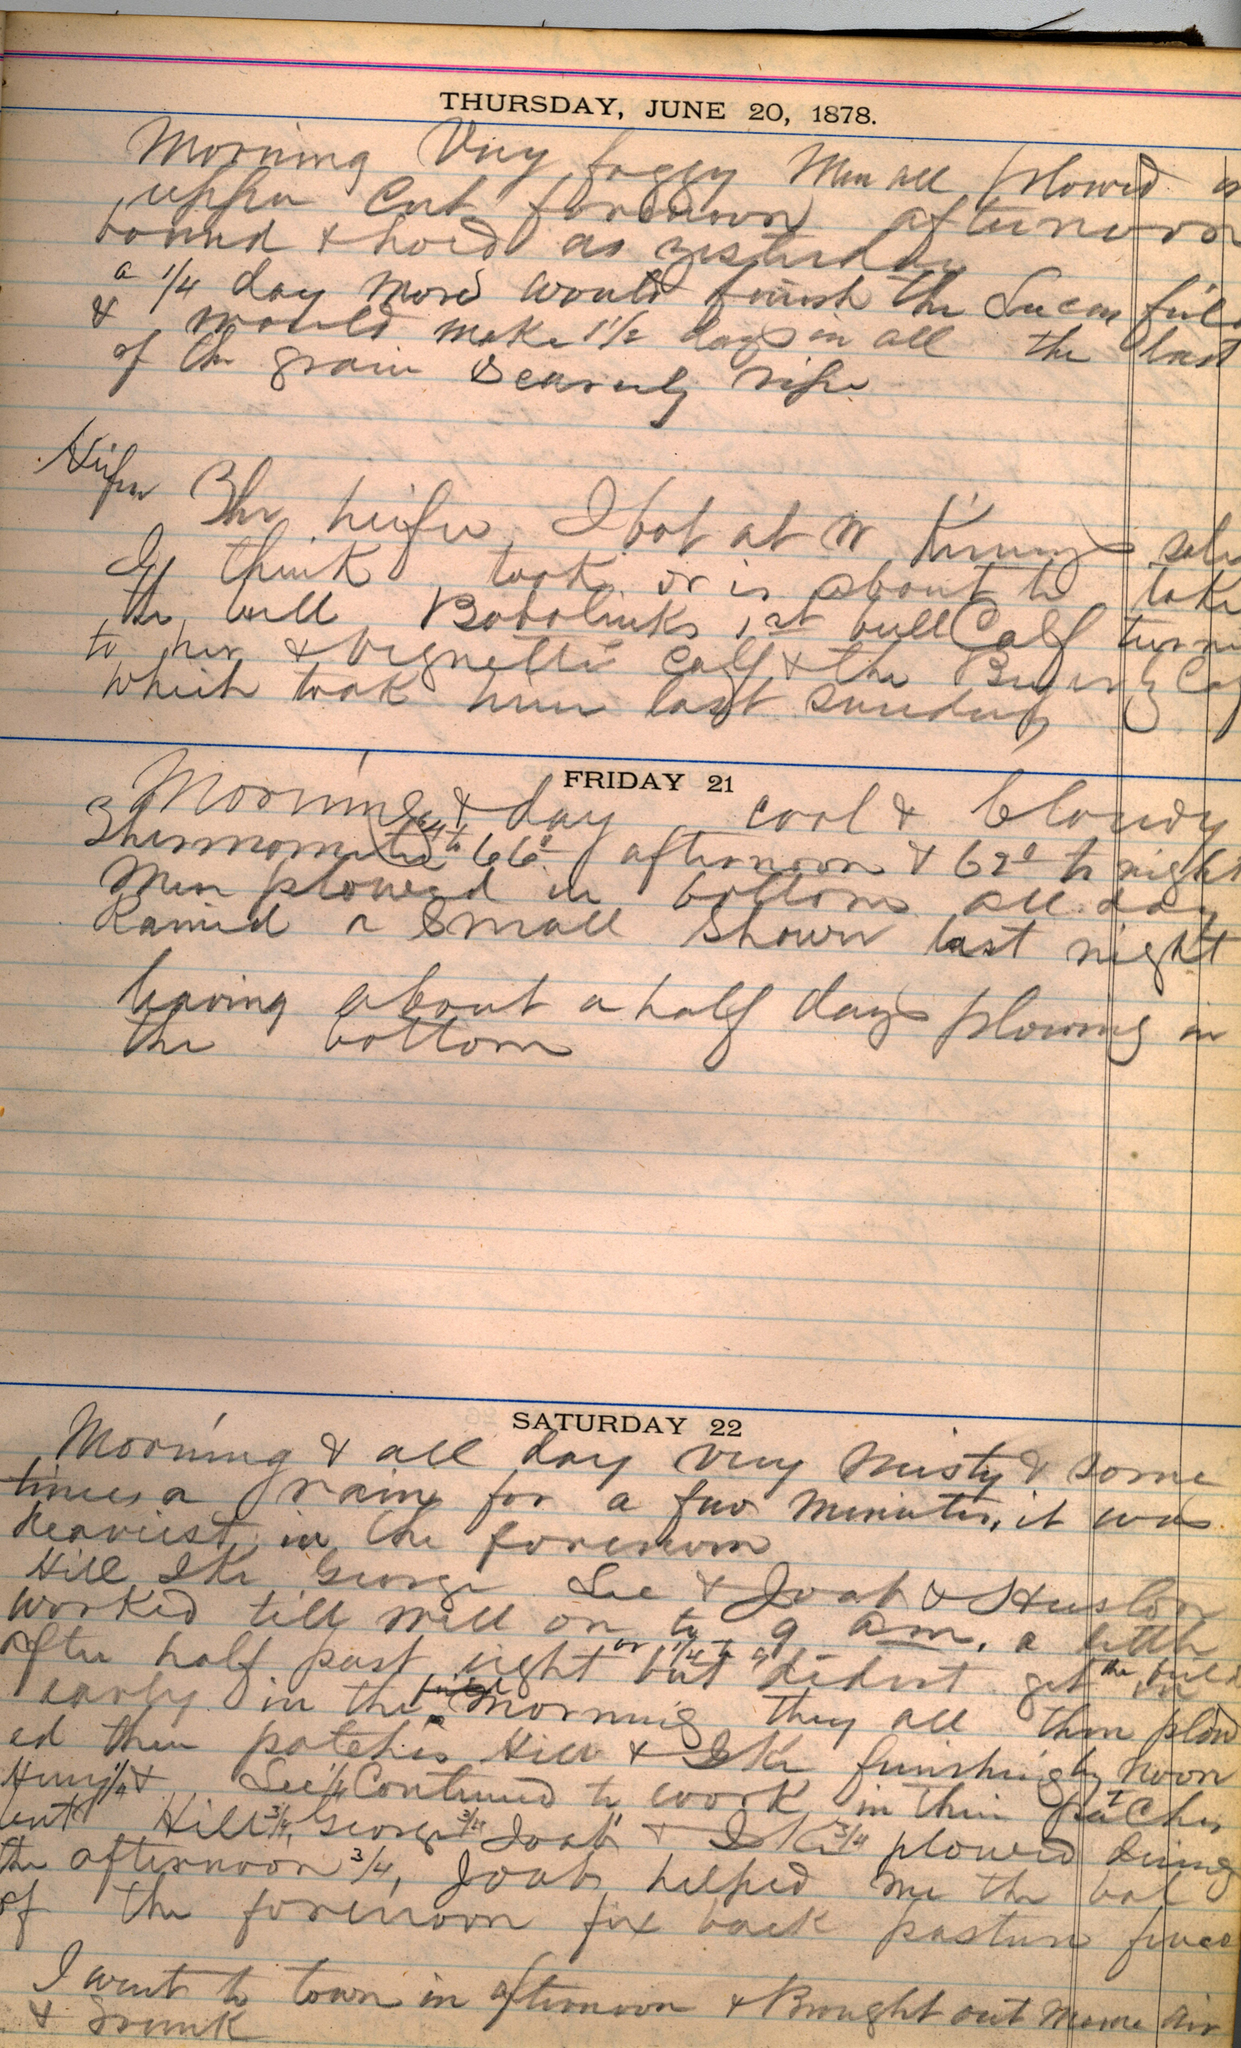 THURSDAY, JUNE 20, 1878.
Morning Very foggy Men all plowed in
upper Cut forenoon afternoon
bound & hoed as yesterday
a 1/4 day more would finish the Lucas field
& would make 1 1/2 days in all the last
of the grain scarcely ripe
Heifer The heifer I bot at Kinnys sale
I think took or is about to take
the bull Bobolinks 1st bull Calf turned
to her & Vignetti Calf & the Calf
which took him last sunday
FRIDAY 21
Morning & day cool & Cloudy
Thermometer at 66° afternoon & 62° to night
Men plowed in bottom all day
Rained a Small Shower last night
leaving about a half days plowing in
the bottom
SATURDAY 22
Morning & all day very misty & some
times a rain for a few minutes, it was
heaviest in the forenoon
Hill Ike George Lee & Joab & Huston
worked till well on to 9 am. a little
after half past eight or 1/4 but didnt get in the field
early in the morning they all then plow
ed their patches Hill & Ike finishing by Noon
Henry 1/4 & Lee 1/4 Continued to work in their patches
but Hill 3/4, George 3/4 Joab & Ike 3/4 plowed during
the afternoon 3/4, Joab helped me the bal
of the forenoon fix back pasture fence
I went to town in afternoon & Brought out Mame
& Trunk